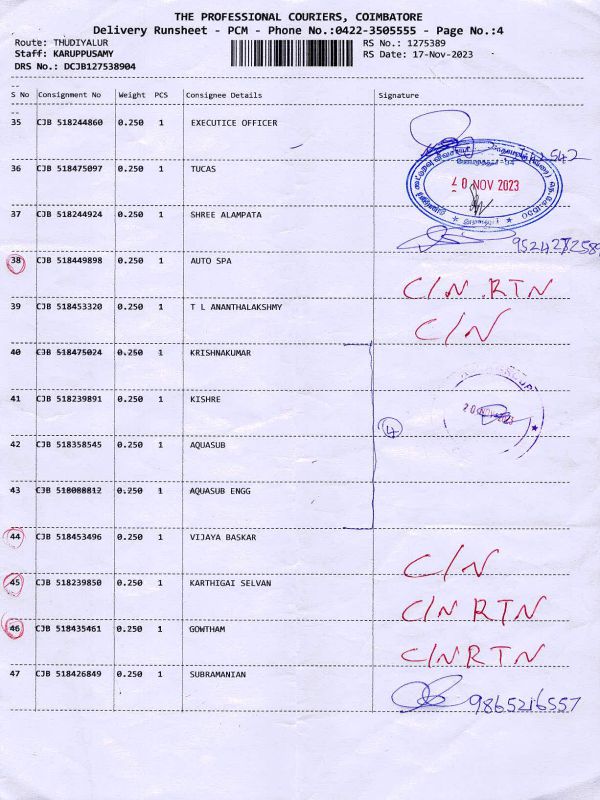 THE PROFESSIONAL COURIERS, COIMBATORE
Delivery Runsheet - PCM - Phone No.:0422-3505555 - Page No.:4
Route: THUDIYALUR RS No.: 1275389
Staff: KARUPPUSAMY RS Date: 17-Nov-2023
DRS No.: DCJB127538904
--
S No Consignment No Weight PCS Consignee Details Signature
--
35 CJB 518244860 0.250 1 EXECUTICE OFFICER
36 CJB 518475097 0.250 1 TUCAS
20 NOV 2023
37 CJB 518244924 0.250 1 SHREE ALAMPATA
38 CJB 518449898 0.250 1 AUTO SPA C/N RTN
39 CJB 518453320 0.250 1 T L ANANTHALAKSHMY C/N
40 CJB 518475024 0.250 1 KRISHNAKUMAR
41 CJB 518239891 0.250 1 KISHRE
20 NOV 2023
4
42 CJB 518358545 0.250 1 AQUASUB
43 CJB 518088812 0.250 1 AQUASUB ENGG
44 CJB 518453496 0.250 1 VIJAYA BASKAR C/N
45 CJB 518239850 0.250 1 KARTHIGAI SELVAN C/N RTN
46 CJB 518435461 0.250 1 GOWTHAM C/N RTN
47 CJB 518426849 0.250 1 SUBRAMANIAN 9865216557